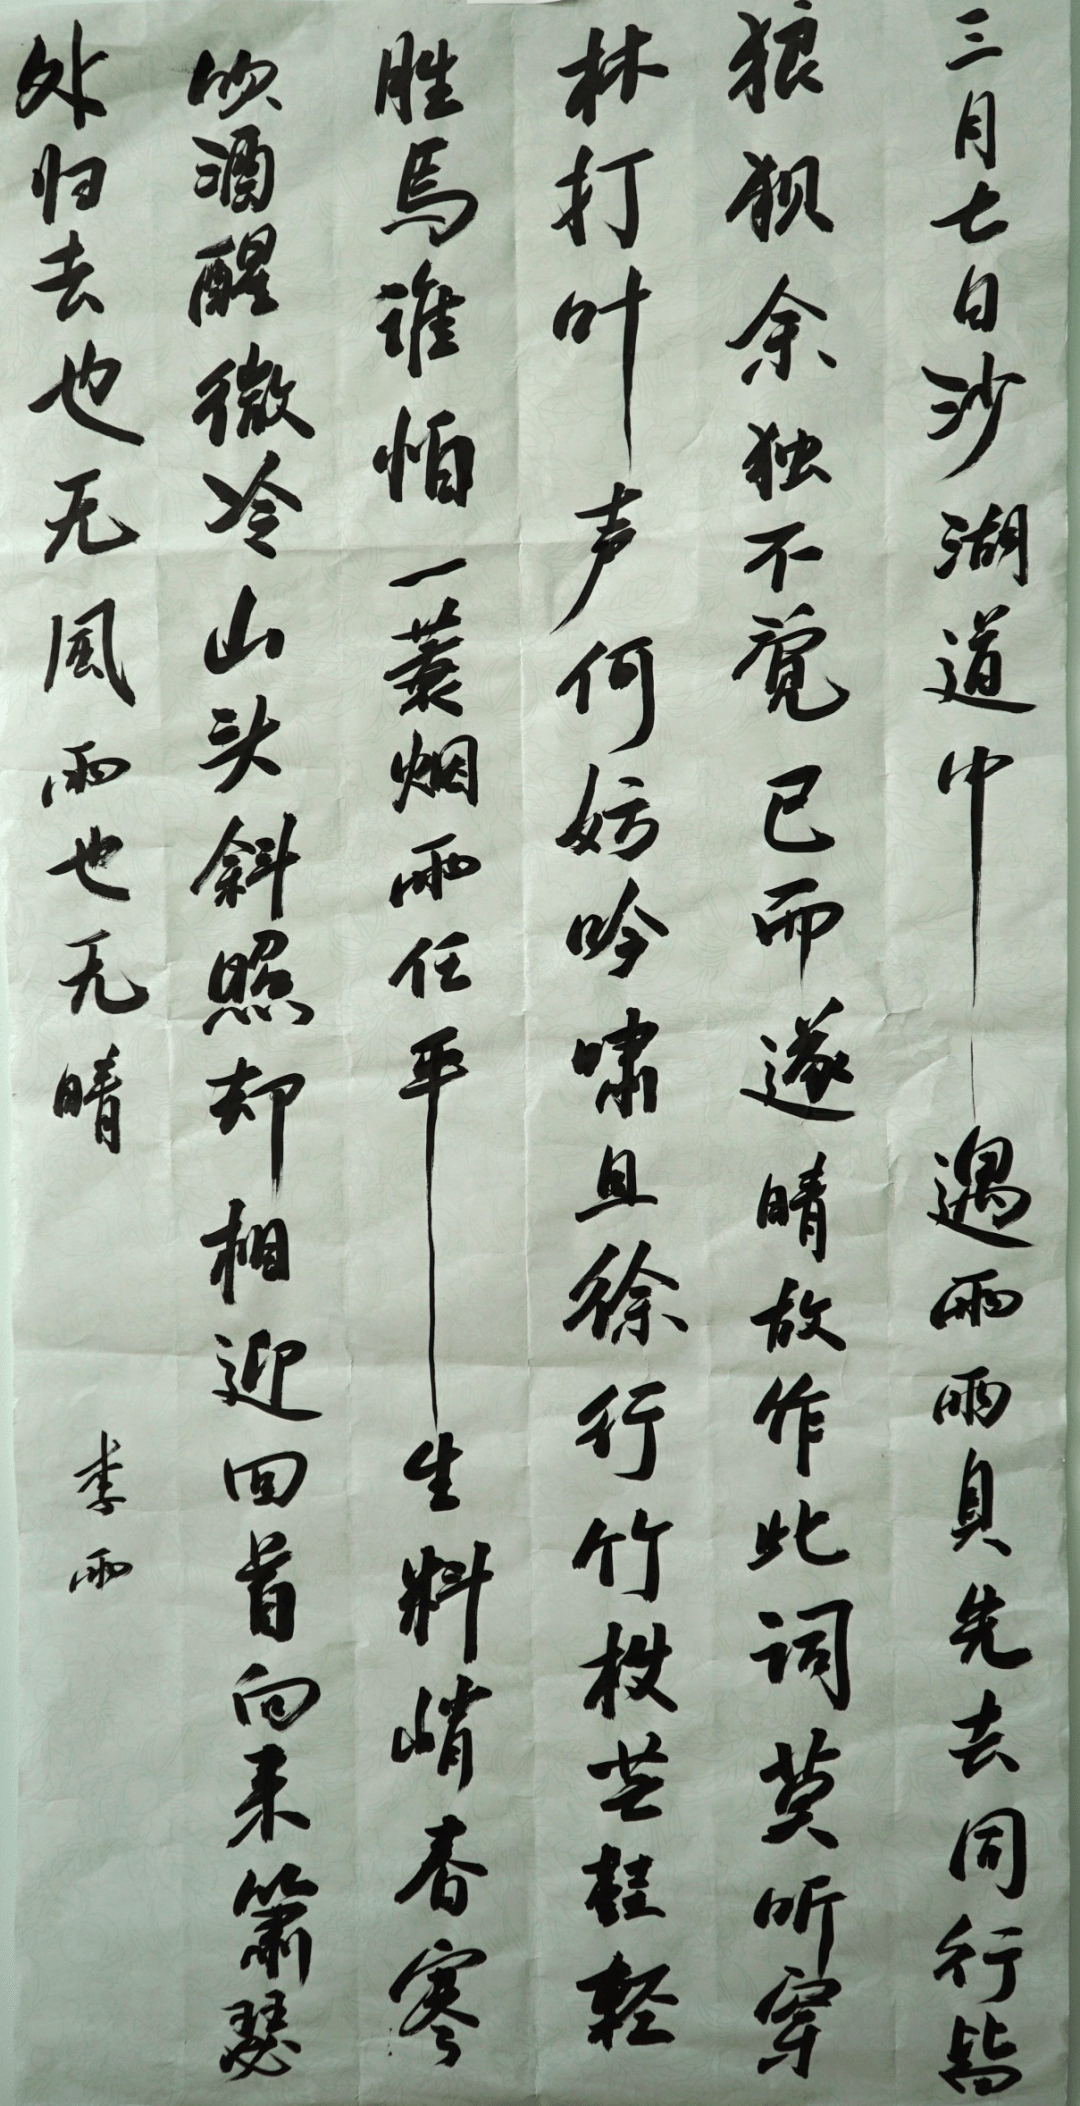 三月七日沙湖道中遇雨雨具先去同行皆
狼狈余独不觉已而遂晴故作此词莫听穿
林打叶声何妨吟啸且徐行竹杖芒鞋轻
胜马谁怕一蓑烟雨任平生料峭春寒
吹酒醒微冷山头斜照却相迎回首向来萧瑟
处归去也无风雨也无晴
李雨